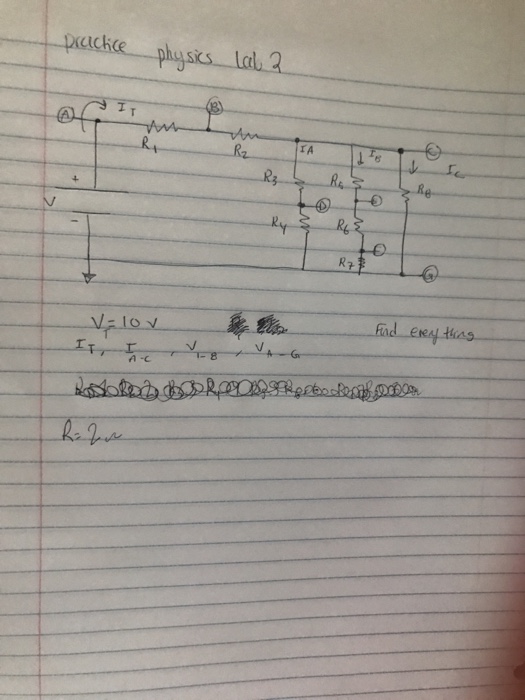 practice physics lab 2
A IT B
R1 R2 IA IB C IC
R3 R5 R8
D
R4 R6
V + -
R7 G
VT = 10 V Find everything
IT, I A-C, V 1-8, VA-G
R = 2Ω